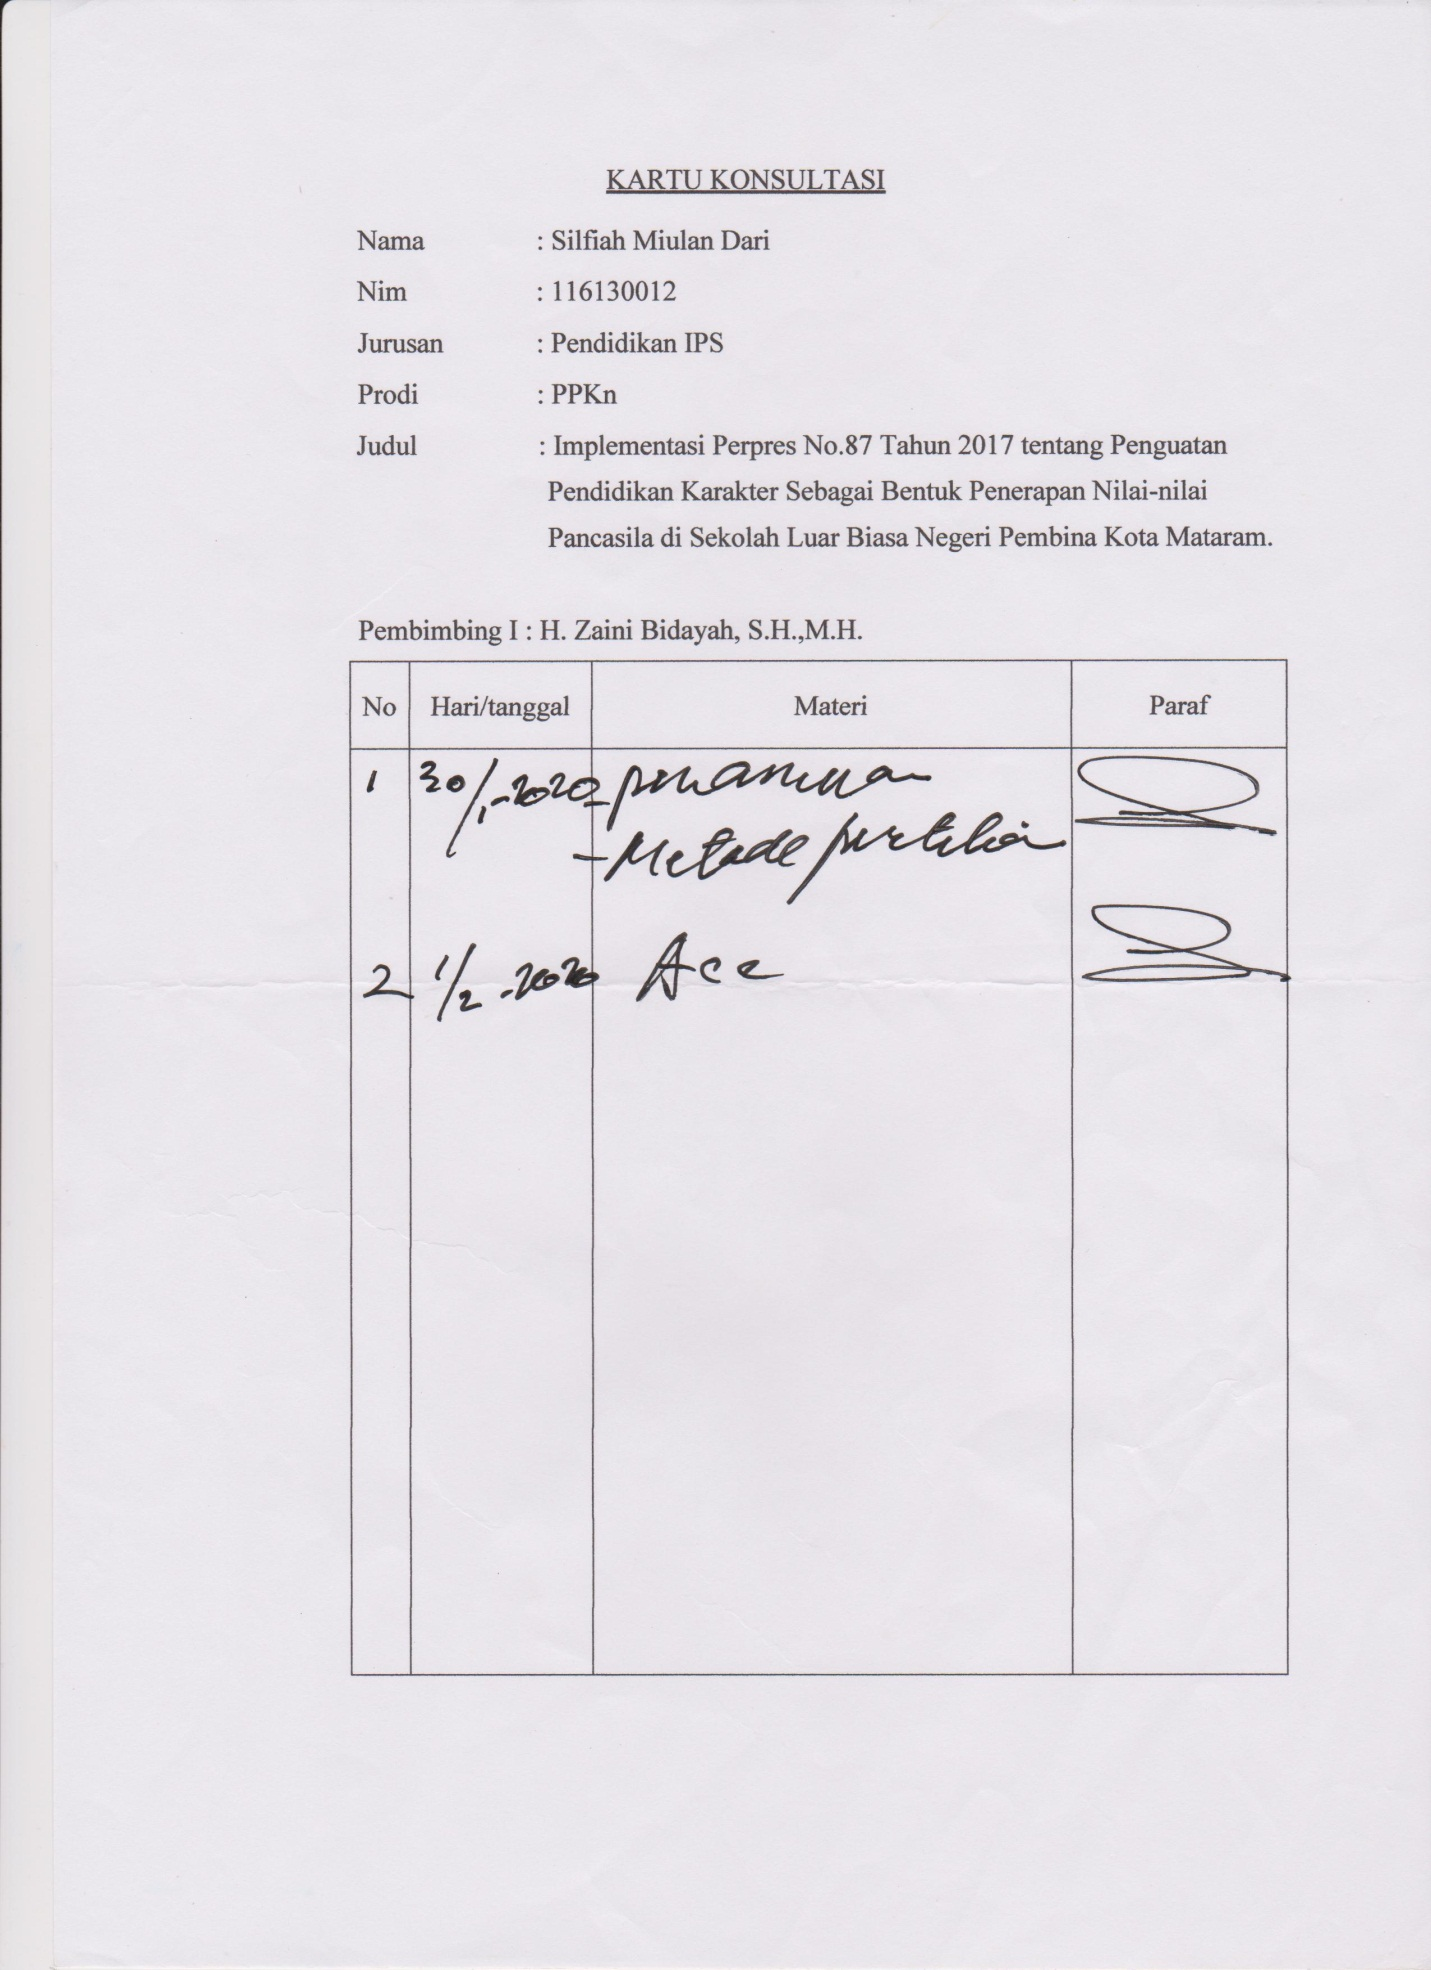 KARTU KONSULTASI
Nama : Silfiah Miulan Dari
Nim : 116130012
Jurusan : Pendidikan IPS
Prodi : PPKn
Judul : Implementasi Perpres No.87 Tahun 2017 tentang Penguatan
Pendidikan Karakter Sebagai Bentuk Penerapan Nilai-nilai
Pancasila di Sekolah Luar Biasa Negeri Pembina Kota Mataram.
Pembimbing I : H. Zaini Bidayah, S.H.,M.H.
No Hari/tanggal Materi Paraf
1 30/1-2020 -
- Metode
2 1/2-2020 Acc